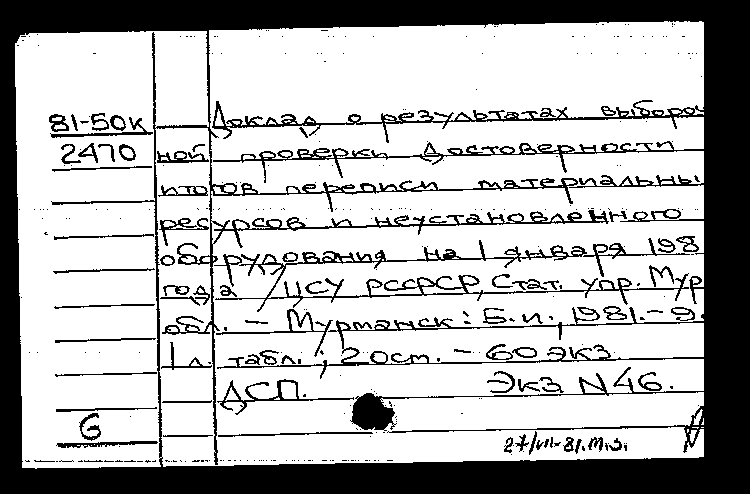 81-50к
2470
Доклад о результатах выбороч
ной проверки достоверности
итогов переписи материальны
ресурсов и неустановленного
оборудования на 1 января 198
года / ЦСУ РСФСР, Стат. упр. Мур
обл. – Мурманск: Б.и., 1981. – 9
1 л. табл.; 20 см. – 60 экз.
ДСП. Экз N 46.
6
27/VII-81.